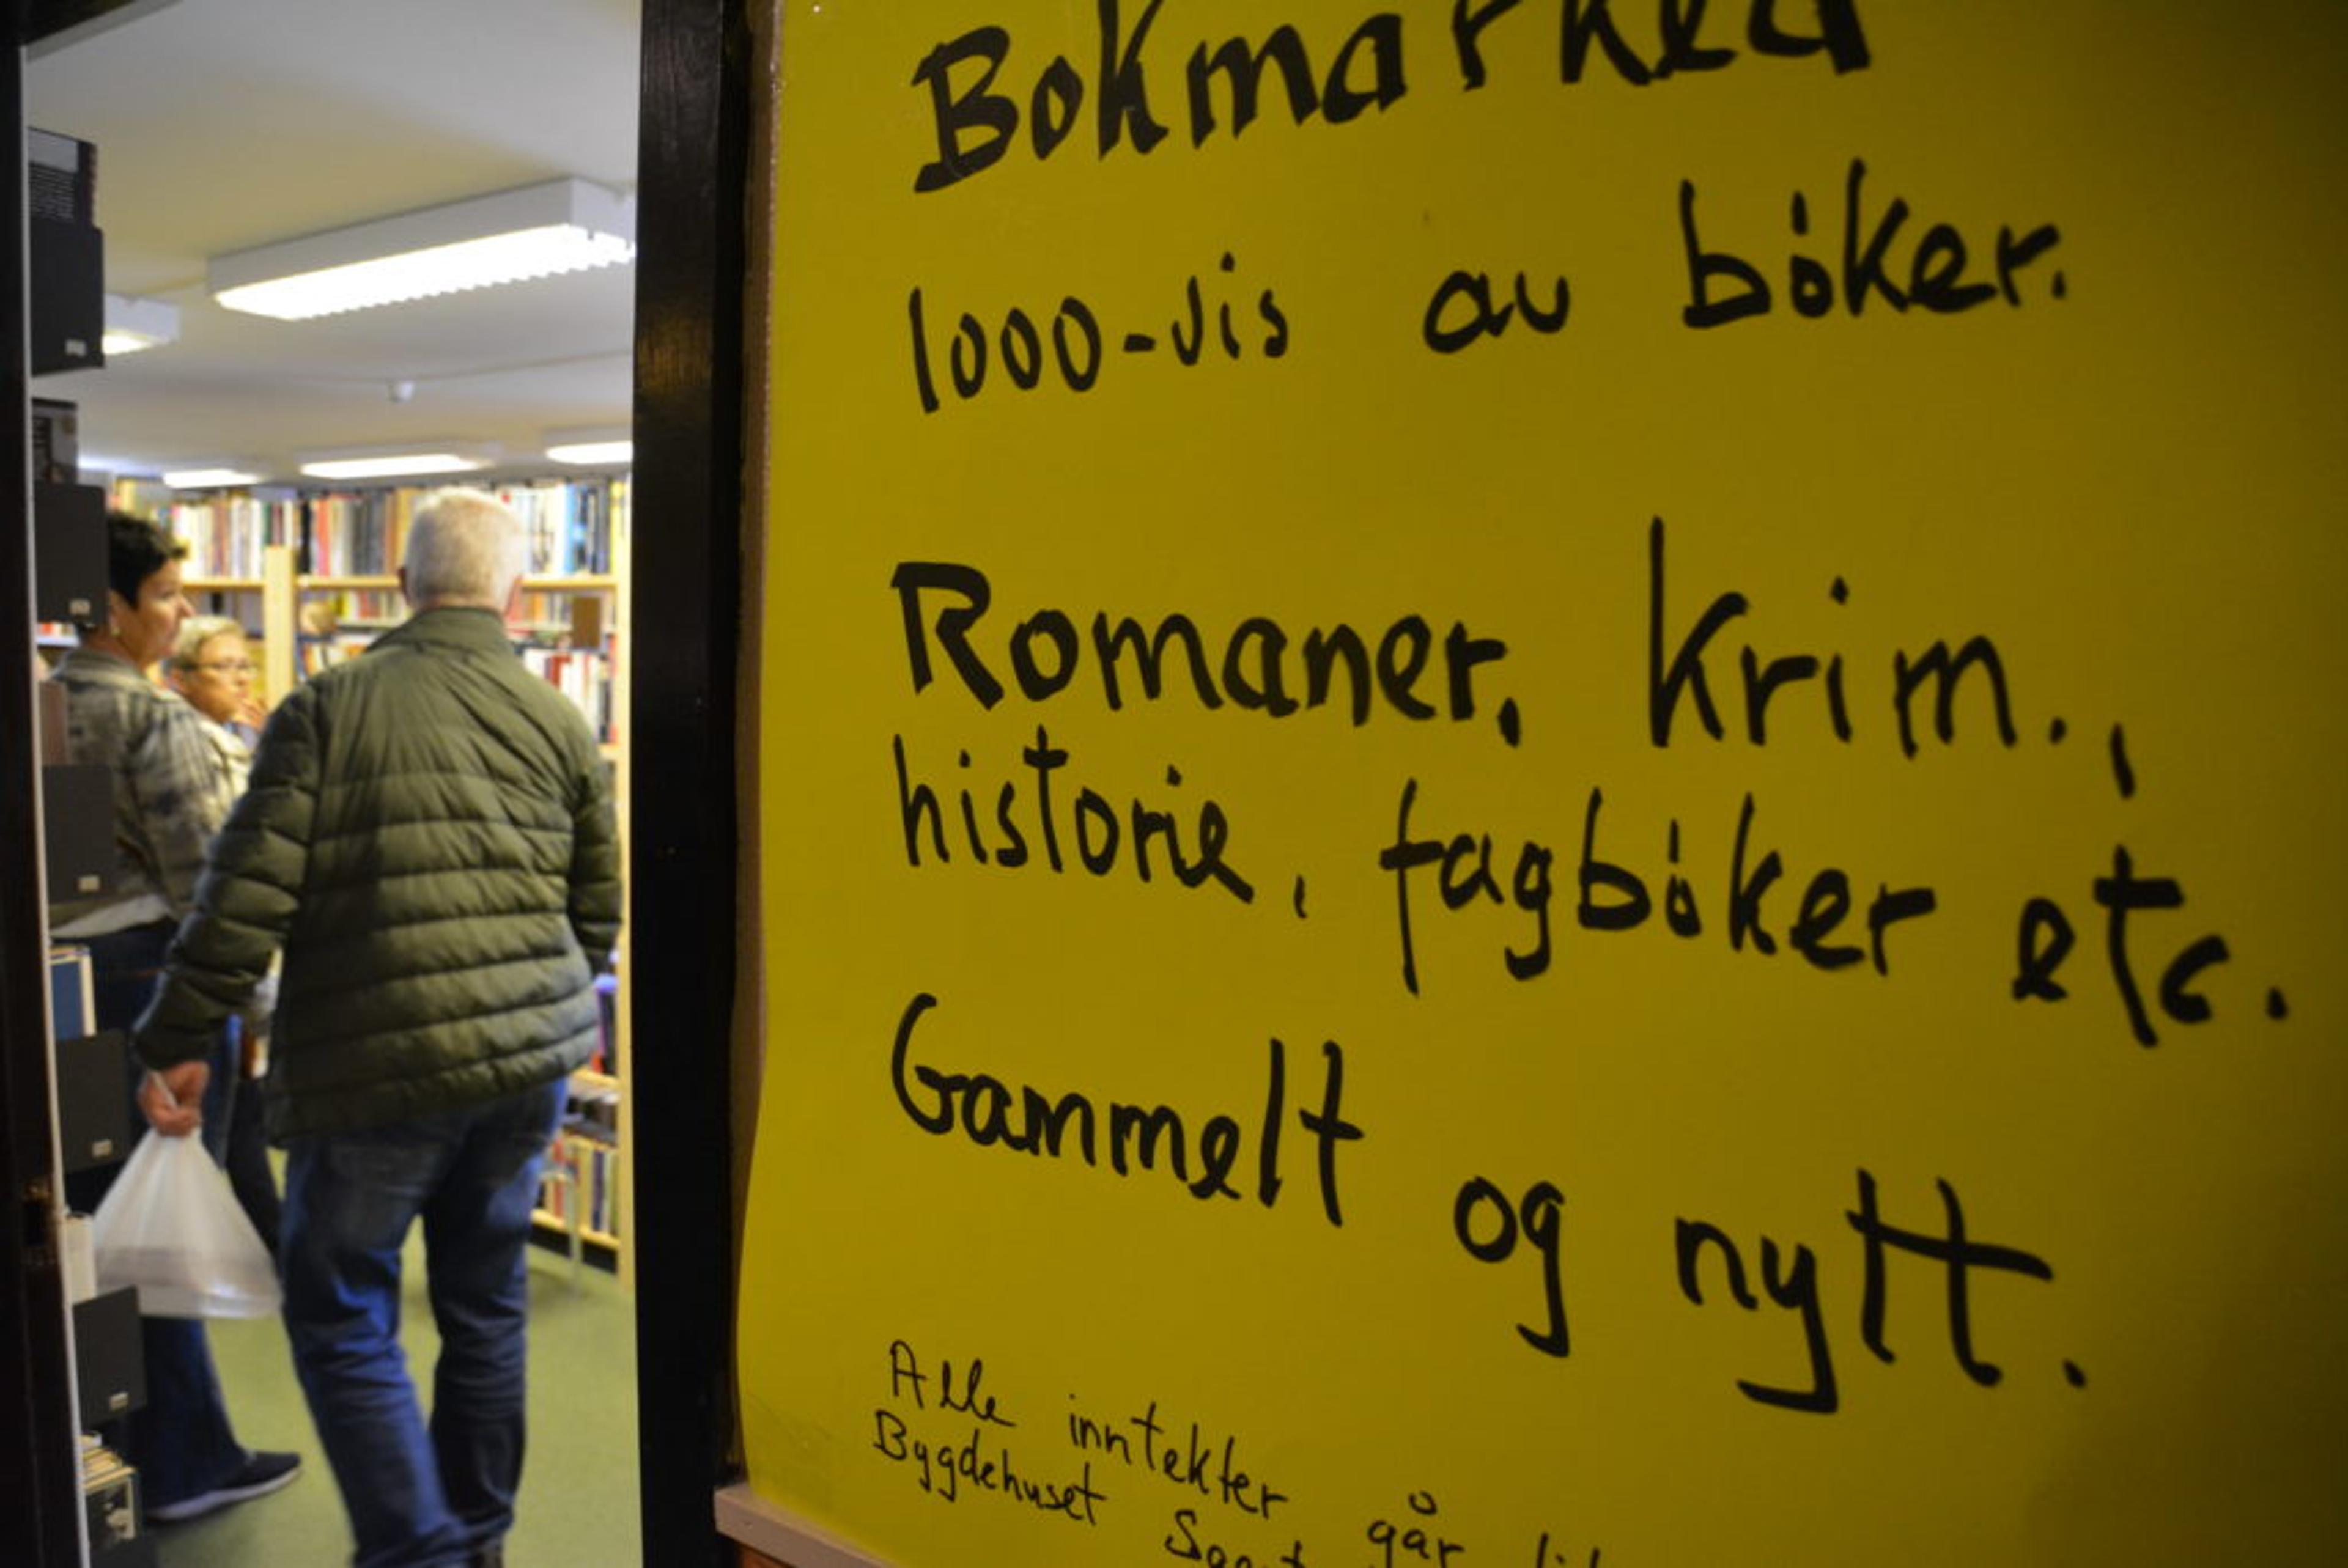 Bokmarked
1000-vis av bøker.
Romaner, krim.,
historie, fagbøker etc.
Gammelt og nytt.
Alle inntekter går til
Bygdehuset